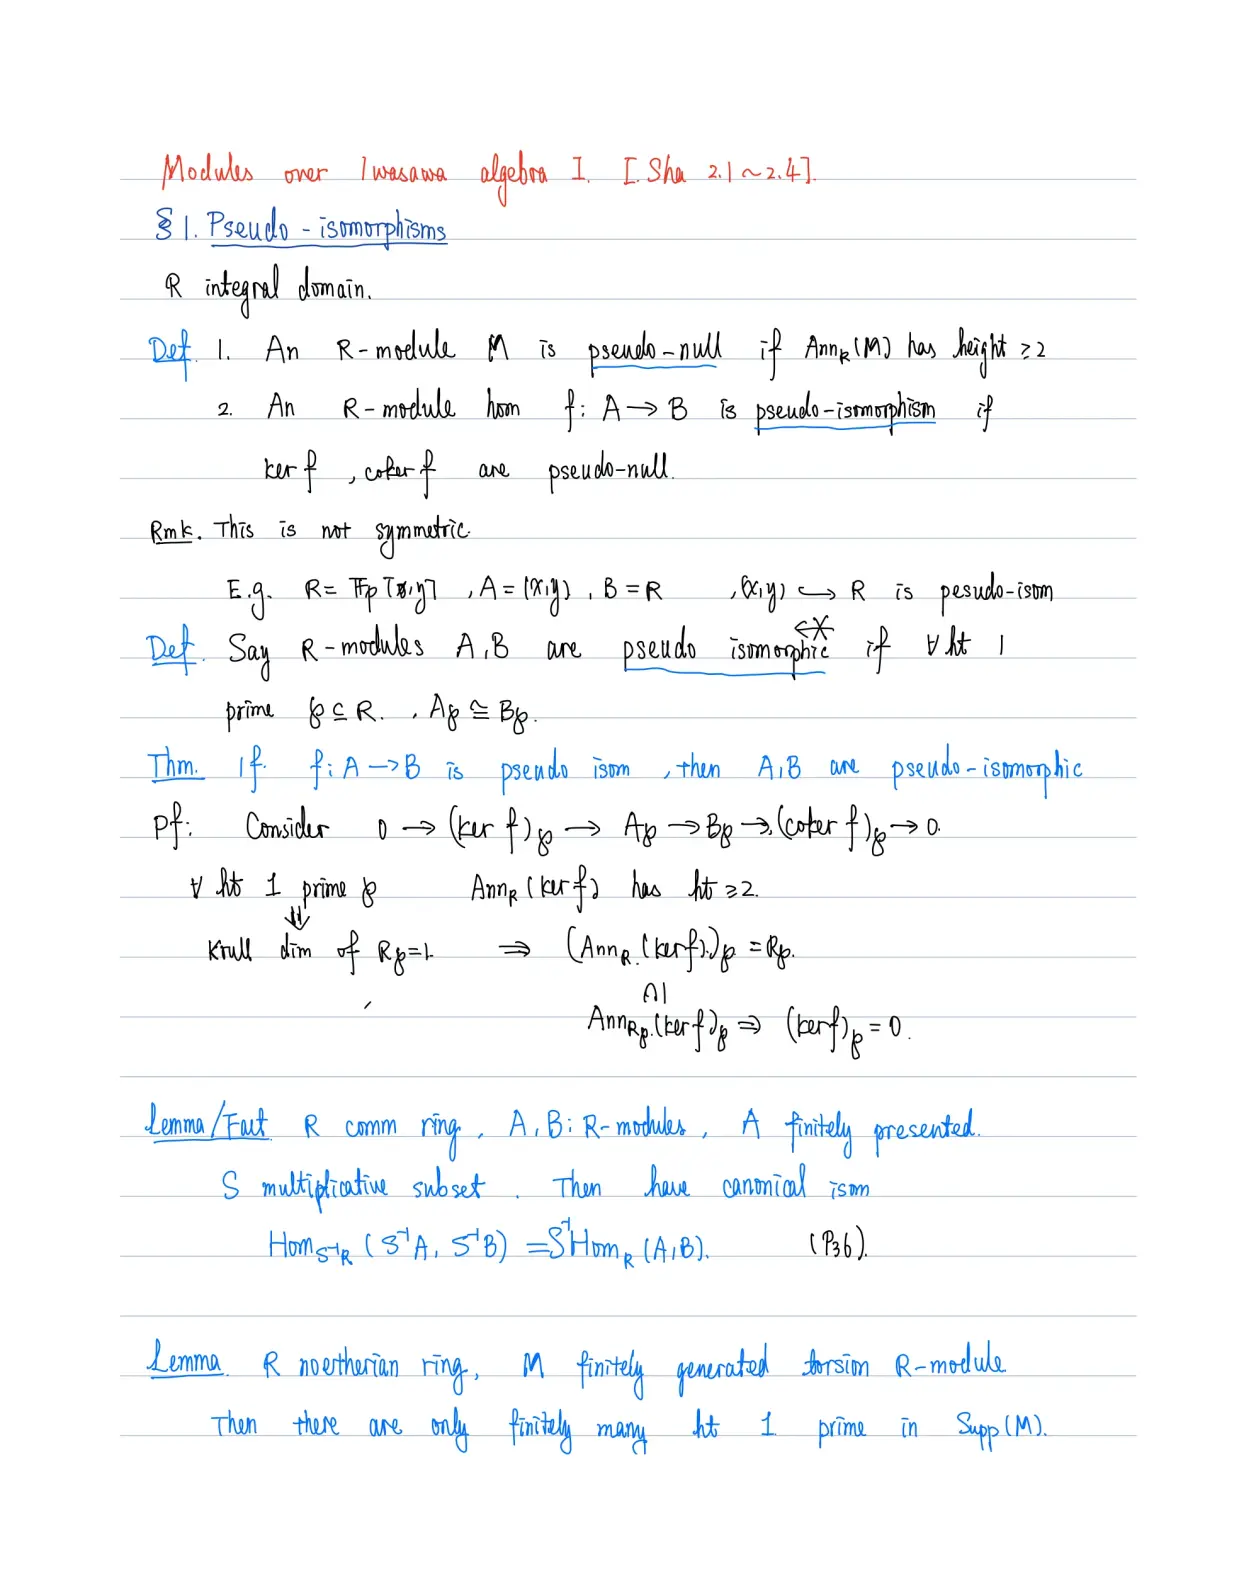 Modules over Iwasawa algebra I. [Sha 2.1~2.4].
§1. Pseudo-isomorphisms
R integral domain.
Def. 1. An R-module M is pseudo-null if Ann_R(M) has height ≥2
2. An R-module hom f: A → B is pseudo-isomorphism if
ker f, coker f are pseudo-null.
Rmk. This is not symmetric.
E.g. R = 𝔽p[x,y], A = (x,y), B = R , (x,y) ↪ R is pesudo-isom
Def. Say R-modules A, B are pseudo isomorphic if ∀ ht 1
prime ℘ ⊆ R. , A℘ ≅ B℘.
Thm. If f: A → B is pseudo isom, then A, B are pseudo-isomorphic
Pf: Consider 0 → (ker f)℘ → A℘ → B℘ → (coker f)℘ → 0.
∀ ht 1 prime ℘ Ann_R(ker f) has ht ≥2.
⇓
Krull dim of R℘=1. ⇒ (Ann_R(ker f))℘ = R℘.
∩|
Ann_R℘(ker f)℘ ⇒ (ker f)℘ = 0.
Lemma/Fact R comm ring, A, B: R-modules, A finitely presented.
S multiplicative subset. Then have canonical isom
Hom_S⁻¹R (S⁻¹A, S⁻¹B) = S⁻¹Hom_R (A,B). (P36).
Lemma. R noertherian ring, M finitely generated torsion R-module
Then there are only finitely many ht 1 prime in Supp(M).